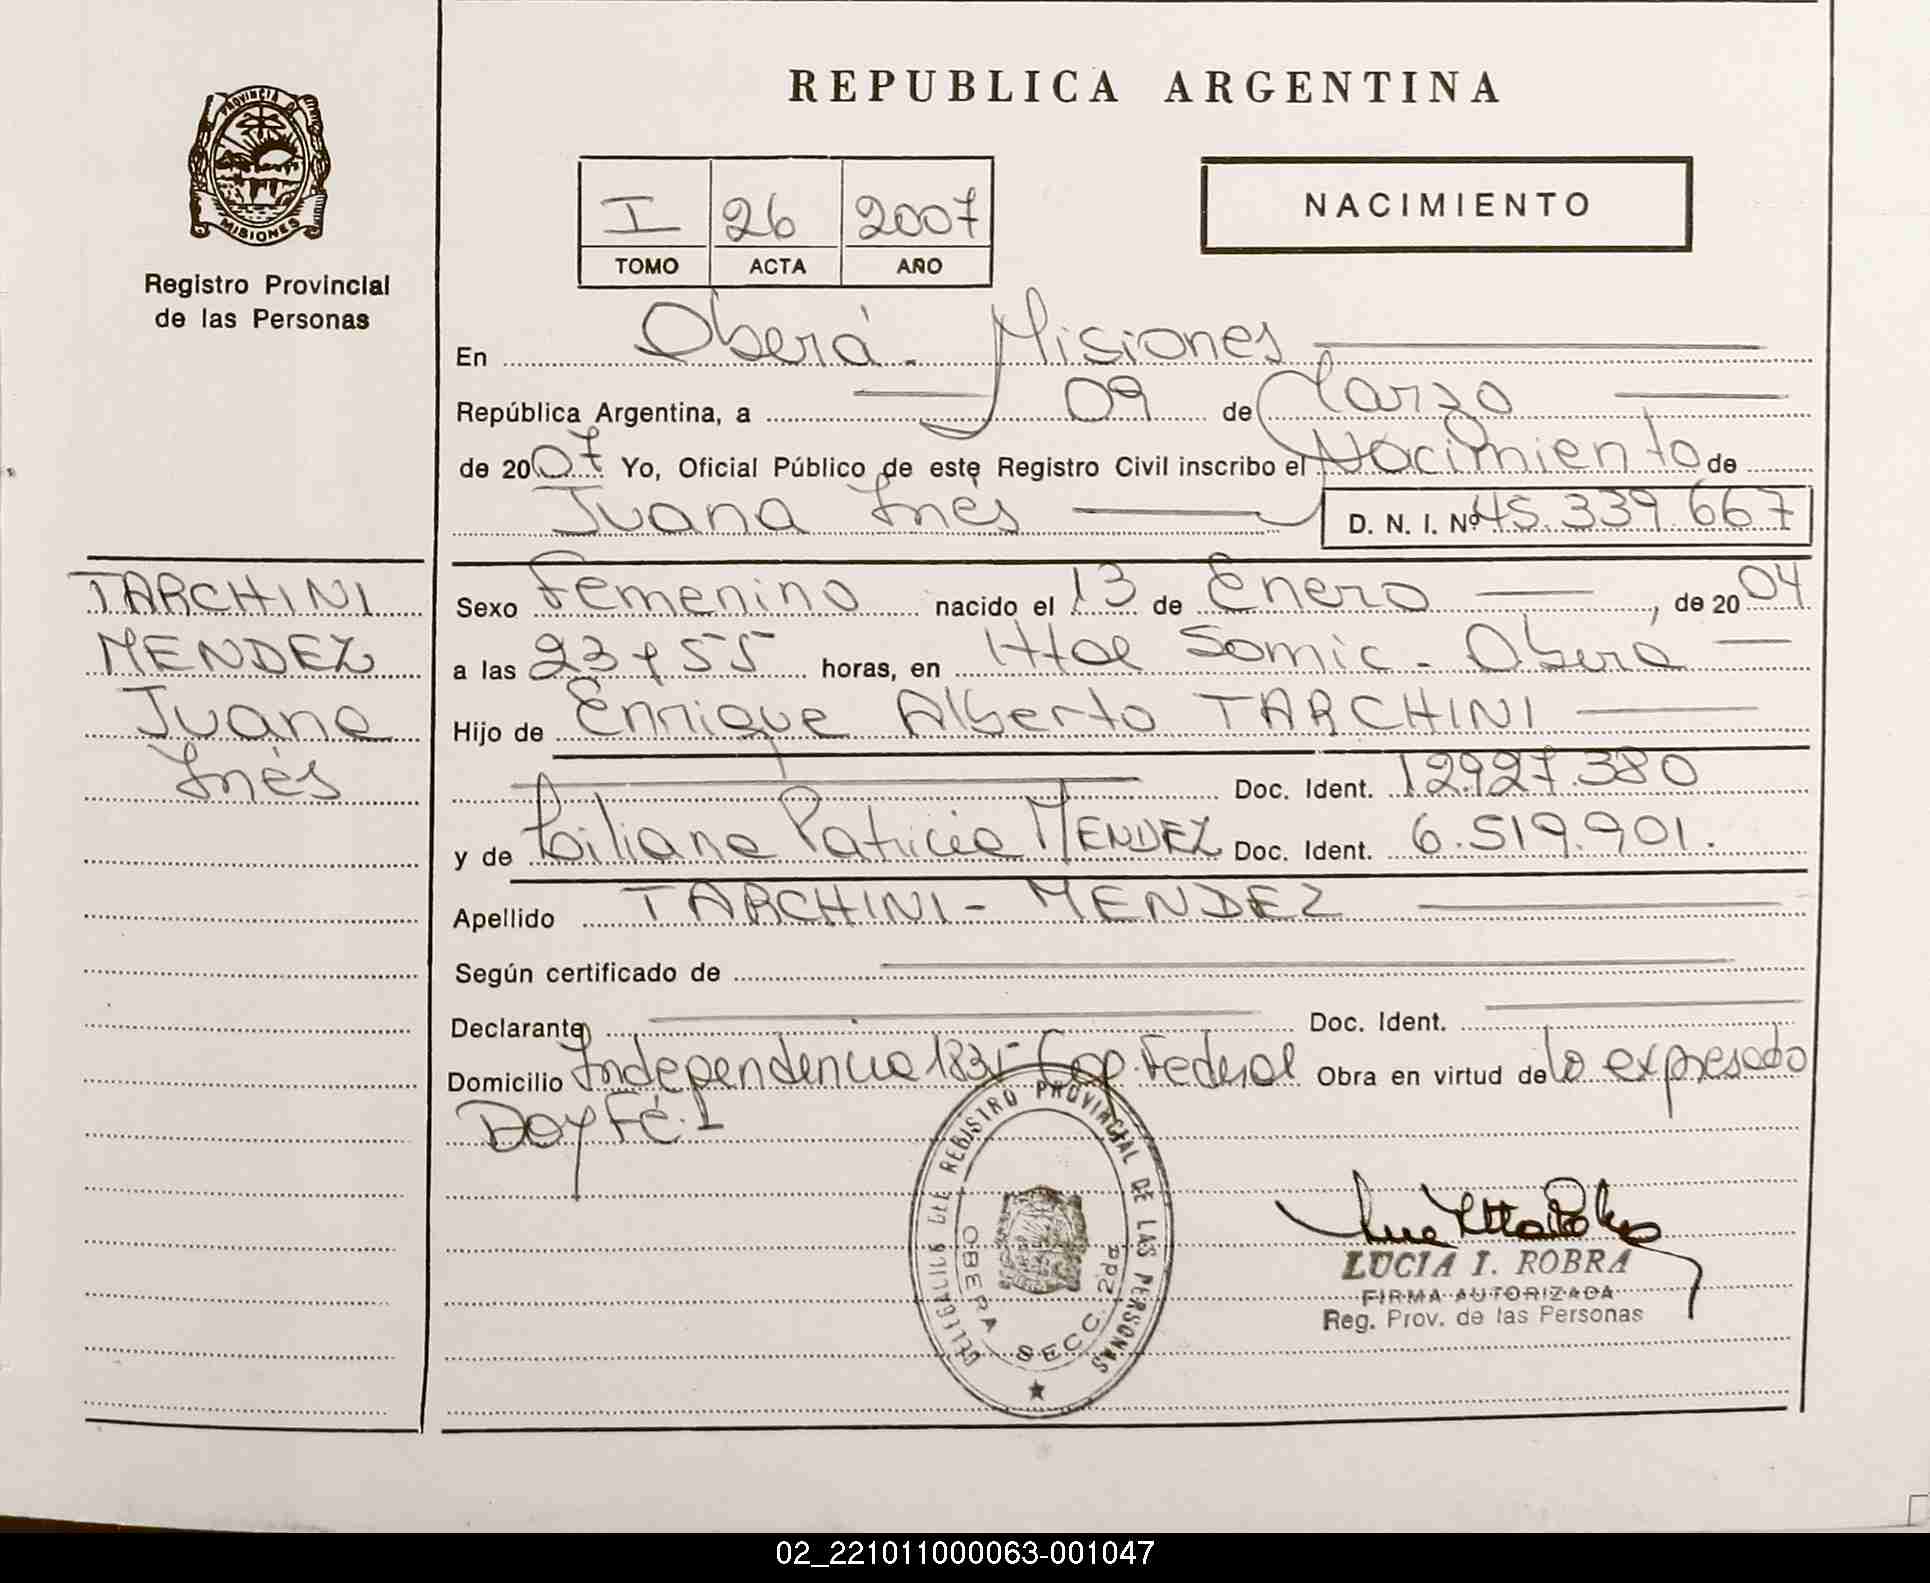 REPUBLICA ARGENTINA
PROVINCIA DE
MISIONES
Registro Provincial
de las Personas
I 26 2007
TOMO ACTA AÑO
NACIMIENTO
En Oberá - Misiones
República Argentina, a 09 de Marzo
de 2007 Yo, Oficial Público de este Registro Civil inscribo el Nacimiento de
Juana Inés
D. N. I. Nº 45.339.667
TARCHINI
MENDEZ
Juana
Inés
Sexo Femenino nacido el 13 de Enero, de 2004
a las 23 y 55 horas, en Htal Samic - Oberá
Hijo de Enrique Alberto TARCHINI
Doc. Ident. 12.927.380
y de Liliana Patricia MENDEZ Doc. Ident. 6.519.901.
Apellido TARCHINI - MENDEZ
Según certificado de
Declarante Doc. Ident.
Domicilio Independencia 1835 Cap. Federal Obra en virtud de lo expresado
Doy Fé.
REGISTRO PROVINCIAL DE LAS PERSONAS
OBERA SECC. 2da
LUCIA I. ROBRA
FIRMA AUTORIZADA
Reg. Prov. de las Personas
02_221011000063-001047